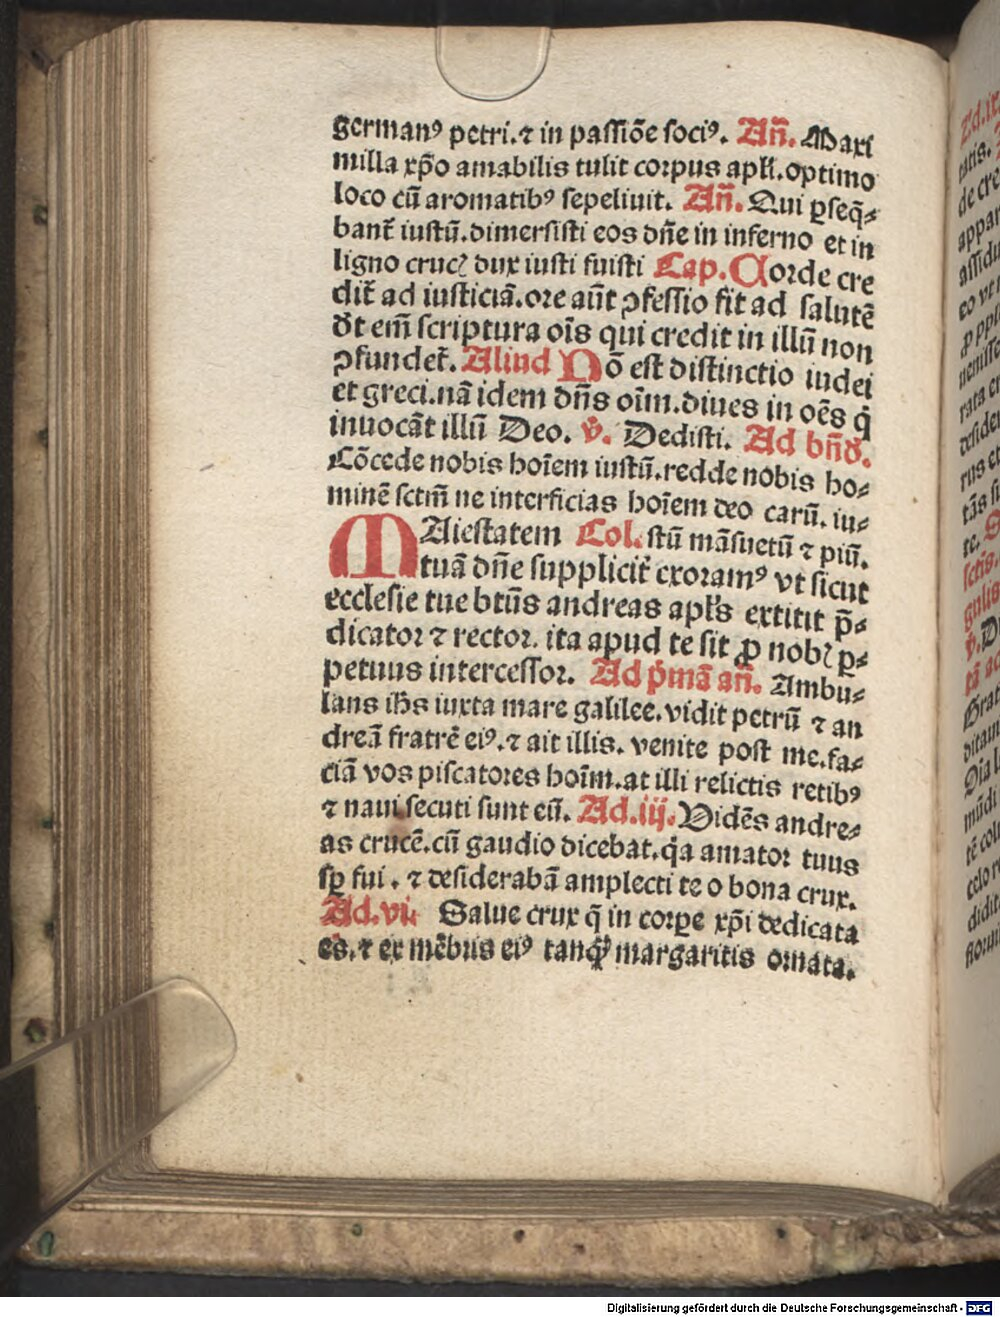 germanꝰ petri.⁊ in paſſiõe ſociꝰ. Añ. Maxi
milla xp̄o amabilis tulit corpus apľi.optimo
loco cū aromatibꝰ ſepeliuit. Añ. Qui ꝑſeq̄⸗
bant̄ iuſtū.dimerſiſti eos dn̄e in inferno et in
ligno crucꝭ dux iuſti fuiſti Cap. Corde cre
dit̄ ad iuſticiā.ore aūt ꝯfeſſio fit ad ſalutē
d̄t em̄ ſcriptura oīs qui credit in illū non
ꝯfundet̄. Aliud Nō eſt diſtinctio iudei
et greci.nā idem dn̄s oīm.diues in oēs q̇
inuocāt illū Deo. v̄. Dediſti. Ad bn̄d̄.
Cōcede nobis hoīem iuſtū.redde nobis ho⸗
minē ſctm̄ ne interficias hoīem deo carū. iu⸗
MAieſtatem Col. ſtū māſuetū ⁊ piū.
tuā dn̄e ſupplicit̄ exoramꝰ vt ſicut
eccleſie tue btūs andreas apľs extitit p̄⸗
dicator ⁊ rector. ita apud te ſit ꝓ nobꝭ ꝑ⸗
petuus interceſſor. Ad pͥmā añ. Ambu⸗
lans ih̄s iuxta mare galilee.vidit petrū ⁊ an
dreā fratrē eiꝰ.⁊ ait illis. venite poſt me.fa⸗
ciā vos piſcatores hoīm.at illi relictis retibꝰ
⁊ naui ſecuti ſunt eū. Ad.iij. Vidēs andre⸗
as crucē.cū gaudio dicebat.qͥa amator tuus
ſꝑ fui. ⁊ deſiderabā amplecti te o bona crux.
Ad.vi. Salue crux q̄ in corꝑe xp̄i dedicata
es.⁊ ex mēbris eiꝰ tanqͣ margaritis ornata.
Digitalisierung gefördert durch die Deutsche Forschungsgemeinschaft - DFG